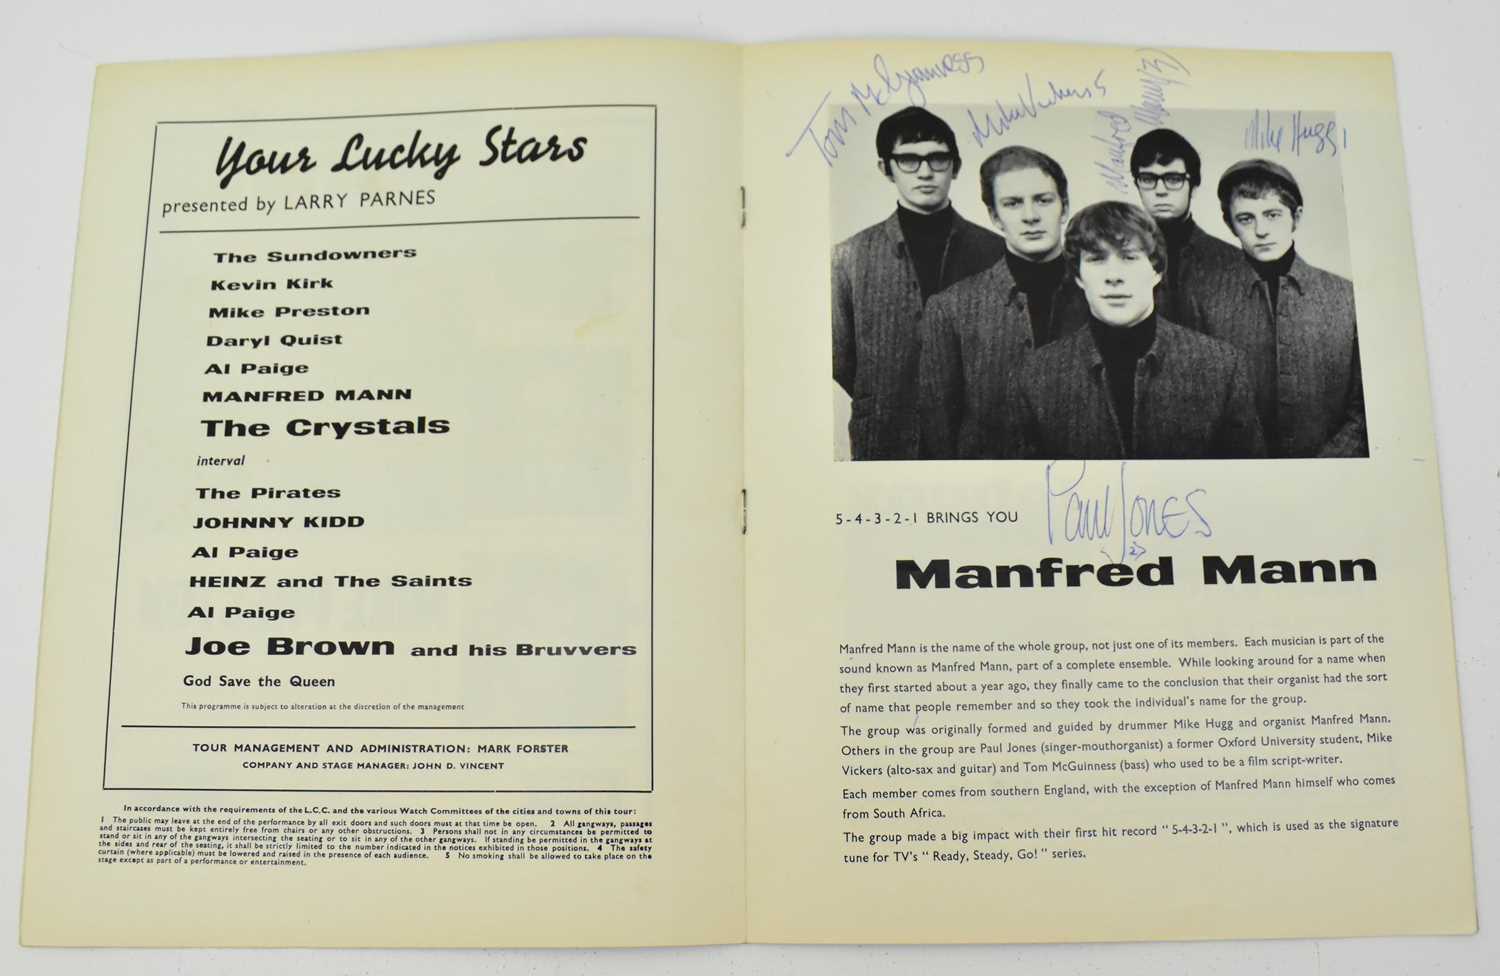 Your Lucky Stars
presented by LARRY PARNES
The Sundowners
Kevin Kirk
Mike Preston
Daryl Quist
Al Paige
MANFRED MANN
The Crystals
interval
The Pirates
JOHNNY KIDD
Al Paige
HEINZ and The Saints
Al Paige
Joe Brown and his Bruvvers
God Save the Queen
This programme is subject to alteration at the discretion of the management
TOUR MANAGEMENT AND ADMINISTRATION: MARK FORSTER
COMPANY AND STAGE MANAGER: JOHN D. VINCENT
In accordance with the requirements of the L.C.C. and the various Watch Committees of the cities and towns of this tour:
1 The public may leave at the end of the performance by all exit doors and such doors must at that time be open. 2 All gangways, passages
and staircases must be kept entirely free from chairs or any other obstructions. 3 Persons shall not in any circumstances be permitted to
stand or sit in any of the gangways intersecting the seating or to sit in any of the other gangways. If standing be permitted in the gangways at
the sides and rear of the seating, it shall be strictly limited to the number indicated in the notices exhibited in those positions. 4 The safety
curtain (where applicable) must be lowered and raised in the presence of each audience. 5 No smoking shall be allowed to take place on the
stage except as part of a performance or entertainment.
Tom McGuinness
Mike Vickers 5
Manfred Mann (3)
Mike Hugg 1
Paul Jones
(2)
5-4-3-2-1 BRINGS YOU
Manfred Mann
Manfred Mann is the name of the whole group, not just one of its members. Each musician is part of the
sound known as Manfred Mann, part of a complete ensemble. While looking around for a name when
they first started about a year ago, they finally came to the conclusion that their organist had the sort
of name that people remember and so they took the individual's name for the group.
The group was originally formed and guided by drummer Mike Hugg and organist Manfred Mann.
Others in the group are Paul Jones (singer-mouthorganist) a former Oxford University student, Mike
Vickers (alto-sax and guitar) and Tom McGuinness (bass) who used to be a film script-writer.
Each member comes from southern England, with the exception of Manfred Mann himself who comes
from South Africa.
The group made a big impact with their first hit record " 5-4-3-2-1 ", which is used as the signature
tune for TV's " Ready, Steady, Go! " series.